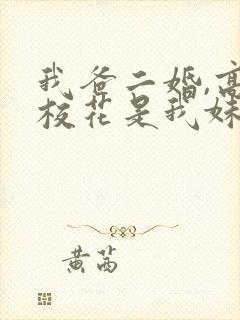 我爸二婚,高
校花是我妹
黄茜